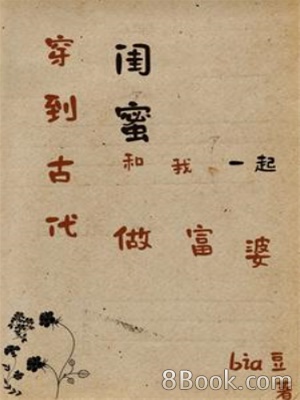 穿到古代
闺蜜
和我一起
做富婆
bia豆
著
8Book.com